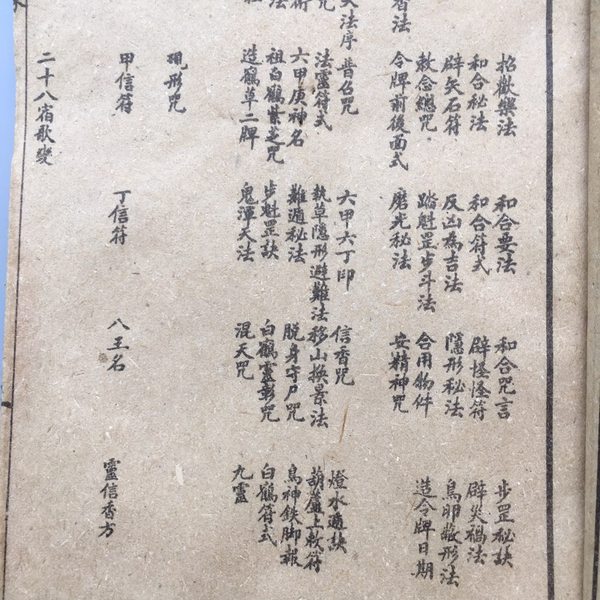 招歡樂法 和合要法 和合咒言 步罡秘訣
和合秘法 和合符式 辟怪符 辟災禍法
辟矢石符 反凶為吉法 隱形秘法 烏卵形法
敕念總咒 踏魁罡步斗法 合用物件 造令牌日期
香法 令牌前後面式 磨光秘法 安精神咒
法序 普召咒 六甲六丁印 信香咒 燈水遁訣
法靈符式 執草隱形避難法 移山換景法 葫蘆上敕符
法 六甲庚神名 難遁秘法 脫身守尸咒 烏神鉄脚報
祖白鶴紫芝咒 步魁罡訣 白鶴靈彰咒 白鶴符式
造鶴草二牌 鬼渾天法 混天咒 九靈
現形咒
甲信符 丁信符 八王名 靈信香方
二十八宿歌